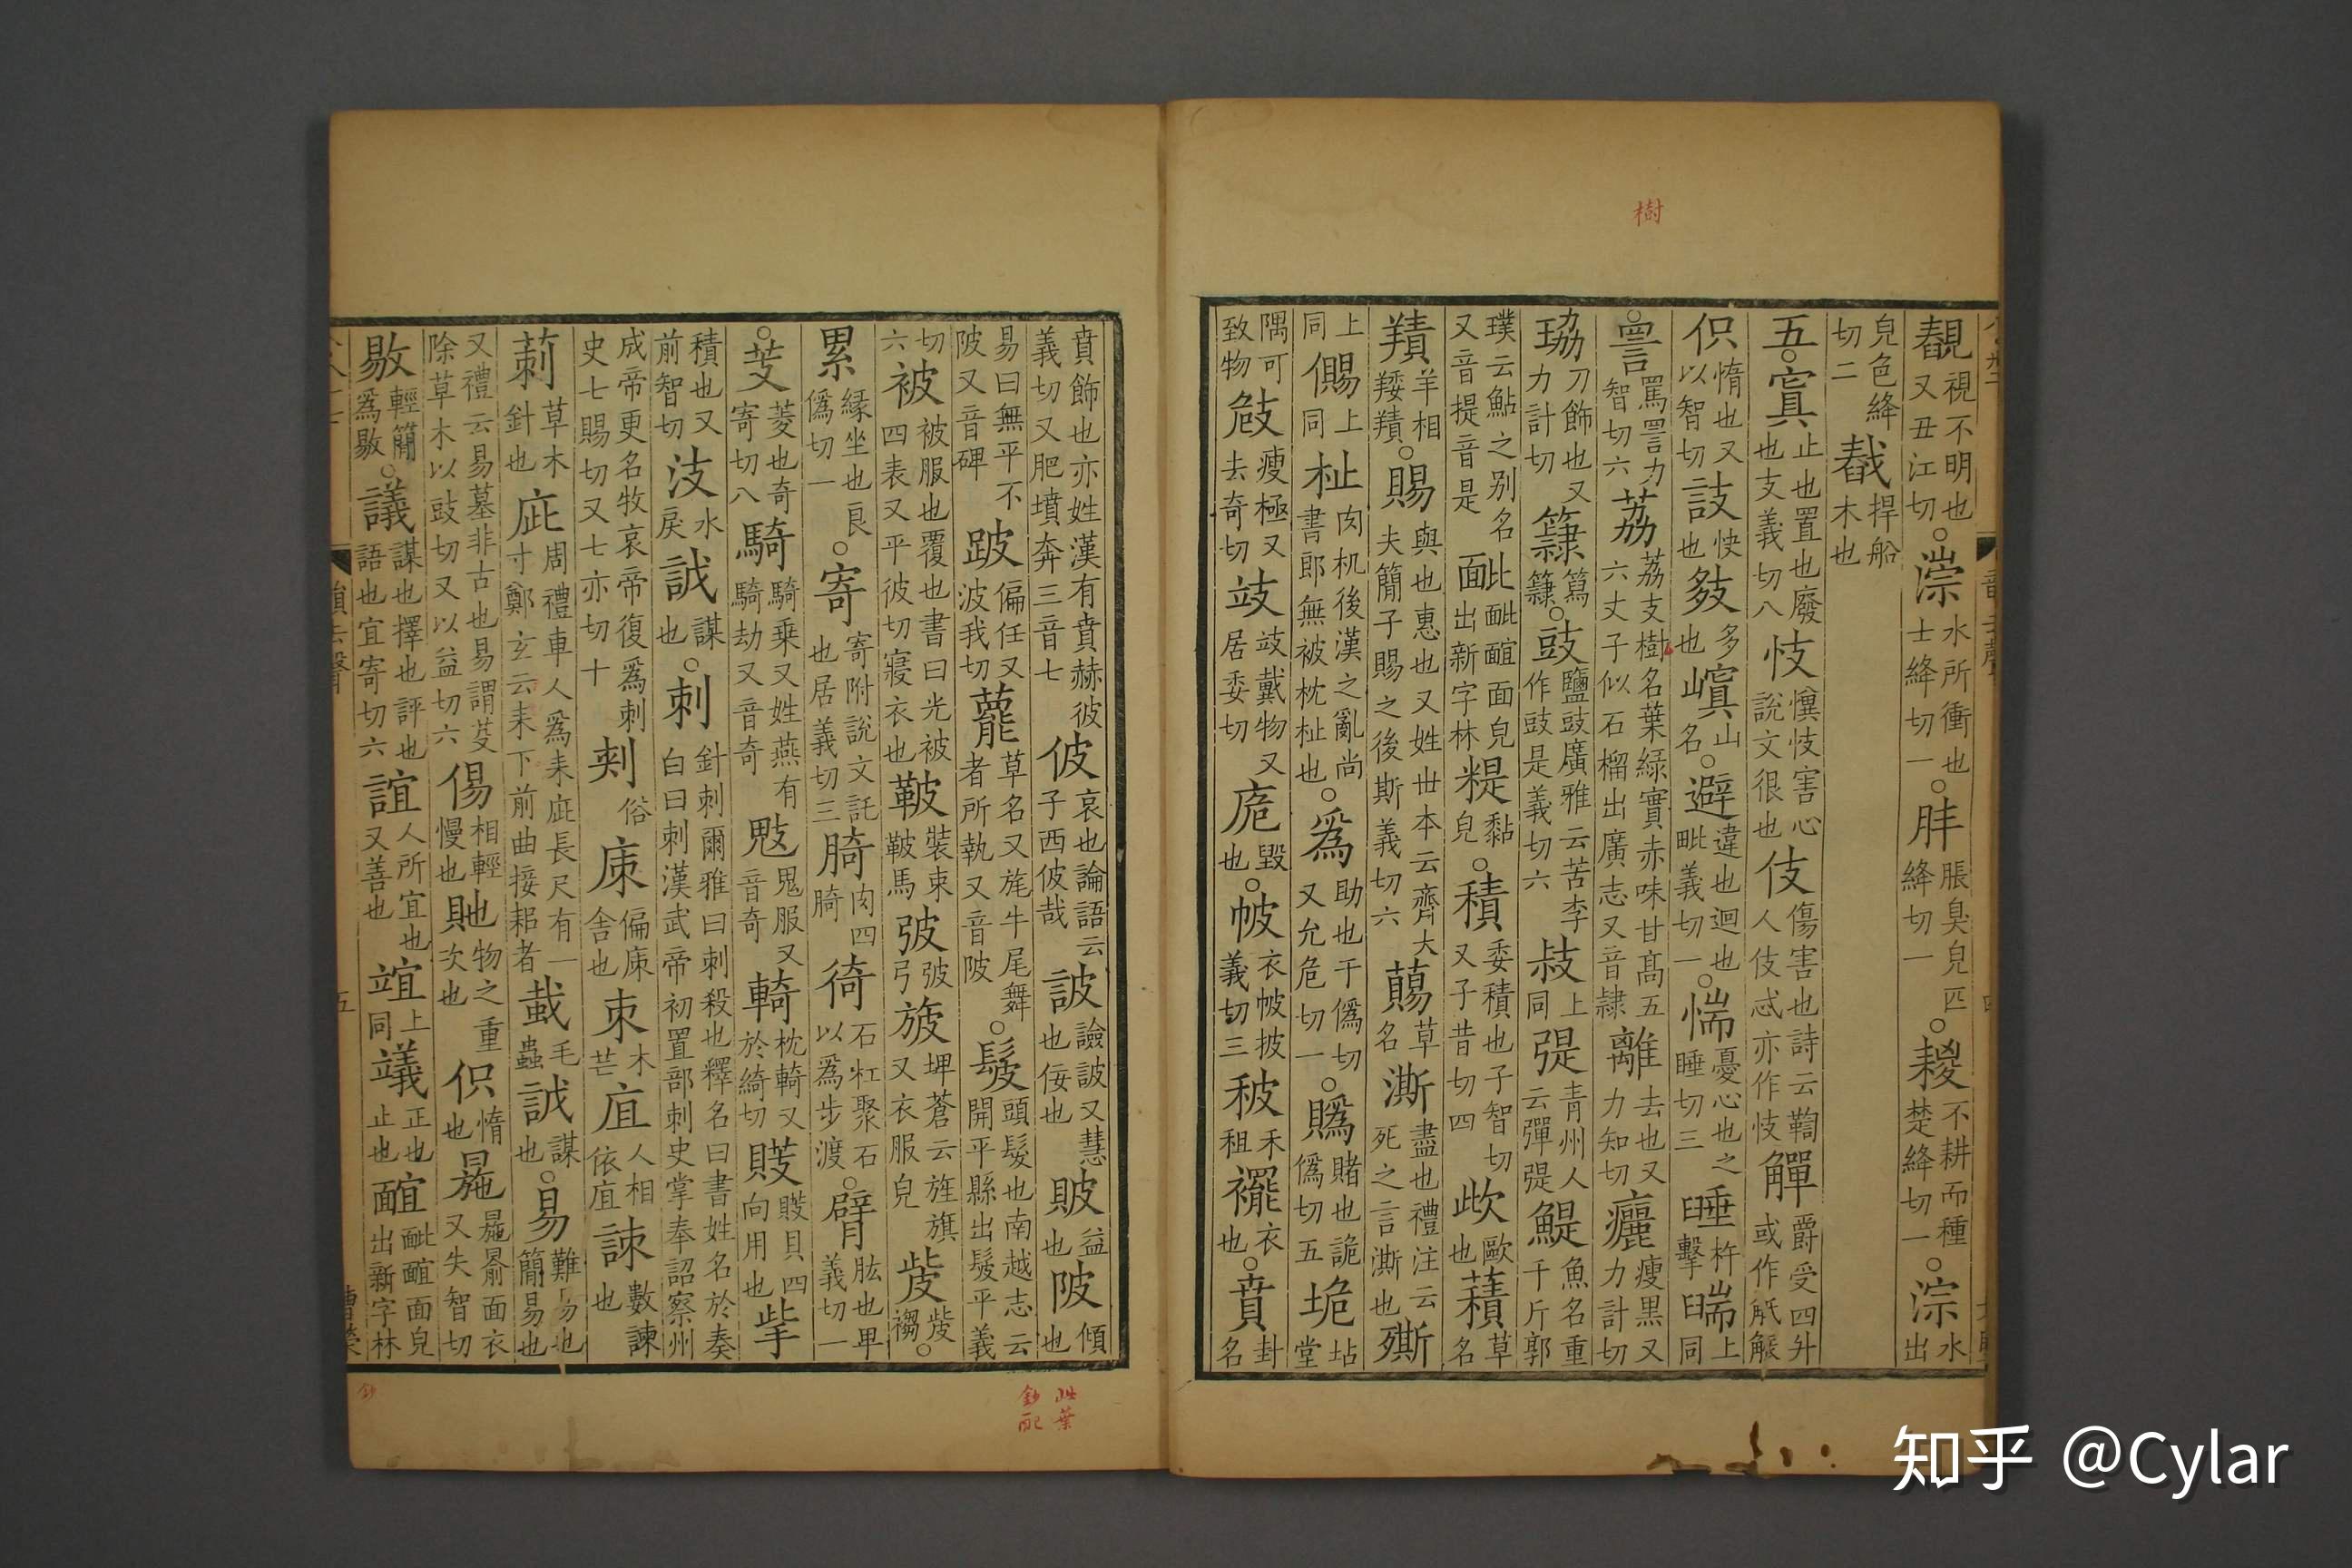 覩視不明也又丑江切○漴水所衝也士絳切一○胖脹臭皃匹絳切一○䎫不耕而種楚絳切一○淙水出
皃色絳切二𢧄捍船木也
五○寘止也置也廢也支義切八忮懻忮害心說文很也伎傷害也詩云鞫人伎忒亦作忮觶爵受四升或作觗䚦
伿惰也又以智切䛊快也㩼多也嵮山名○避違也迴也毗義切一○惴憂心也之睡切三䐋杵擊上同
○詈罵詈力智切六荔荔支樹名葉綠實赤味甘高五六丈子似石榴出廣志又音隸離去也又力知切㿛瘦黑又力計切
珕刀飾也又力計切䉫篤䉫○豉鹽豉廣雅云苦李作豉是義切六敊上同弽青州人云彈鯷魚名重千斤郭
璞云鮎之别名又音提音是面皃出新字林䊓黏皃○積委積也子智切又子昔切四㰣歐也䕪草名
羵羊相羵○賜與也惠也又姓世本云齊大夫簡子賜之後斯義切六蕮草名澌盡也禮注云死之言澌也㒋
上同儩上同杫肉机後漢之亂尚書郎無被枕杫也○爲助也于僞切又允危切一○䞈賭也詭僞切五垝坫堂
隅可致物㩻瘦極又去奇切攱攱戴物又居委切庪毀也○帔衣帔披義切三秛禾租襬衣也○賁卦名
賁飾也亦姓漢有賁赫彼義切又肥墳奔三音七佊哀也論語云子西佊哉詖譣詖又慧也佞也貱益也陂傾也
易曰無平不陂又音碑跛偏任又波我切藣草名又旄牛尾舞者所執又音陂○髲頭髲也南越志云開平縣出髲平義
切六被被服也覆也書曰光被四表又平彼切寢衣也鞁裝束鞁馬㢰㢰弓旇埤蒼云旌旗又衣服皃㱟㱟襹○
累緣坐也良僞切一○寄寄附說文託也居義切三䏢肉四䏢徛石杠聚石以爲步渡○臂肱也卑義切一
○芰菱也奇寄切八騎騎乘又姓燕有騎劫又音奇鬾鬼服又音奇輢枕輢又於綺切䝰䝰貝四向用也㧗
積也又前智切汥水戾誠謀也○刺針刺爾雅曰刺殺也釋名曰書姓名於奏白曰刺漢武帝初置部刺史掌奉詔察州
成帝更名牧哀帝復爲刺史七賜切又七亦切十㓨俗㢀偏㢀舍也朿木芒㡹人相依㡹諫數諫也
莿草木針也庛周禮車人爲耒庛長尺有一寸鄭玄云耒下前曲接耜者蛓毛蟲誠謀也○易難易也簡易也
又禮云易墓非古也易謂芟除草木以豉切又以益切六傷相輕慢也貤物之重次也伿惰也㫊㫊㒱面衣又失智切
敭輕簡爲敭○議謀也擇也評也語也宜寄切六誼人所宜也又善也竩上同䕏正也止也䩉面皃出新字林
樹
此葉鈔配
鈔
知乎 @Cylar